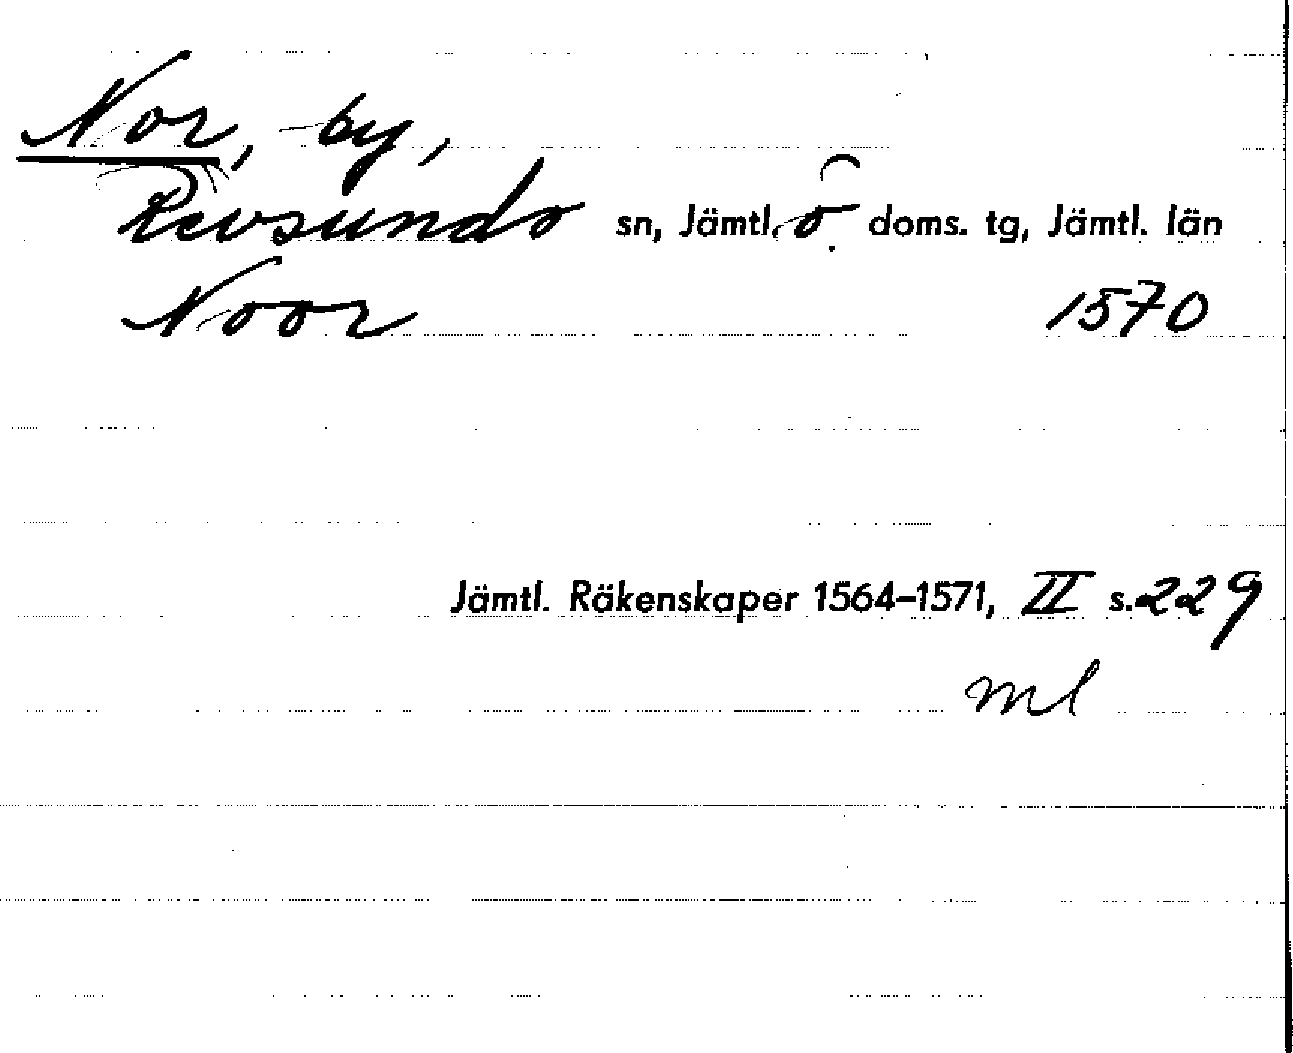 Nor, by,
Revsunds sn, Jämtl. ö. doms. tg, Jämtl. län
Noor 1570
Jämtl. Räkenskaper 1564–1571, II s. 229
ml